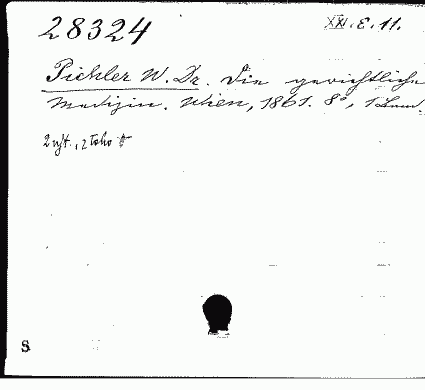 28324 XXI.E.11.
Pichler W. Dr. Die gerichtliche
Medizin. Wien, 1861. 8°, 1
S